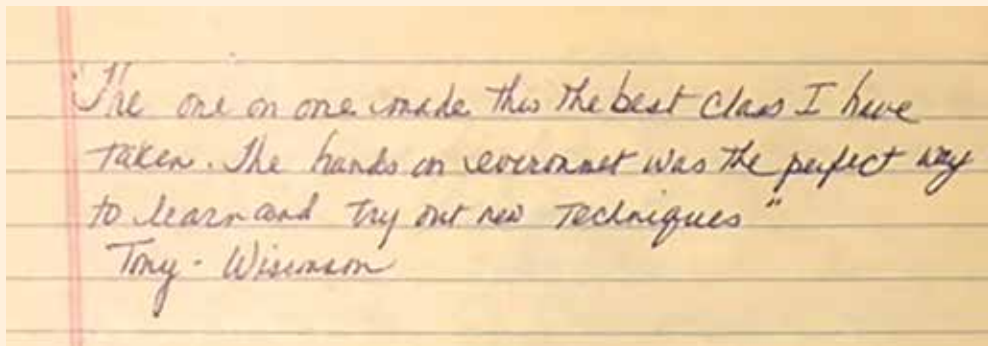 "The one on one made this the best class I have
taken. The hands on everonmet was the perfect way
to learn and try out new techniques"
Tony - Wisconson